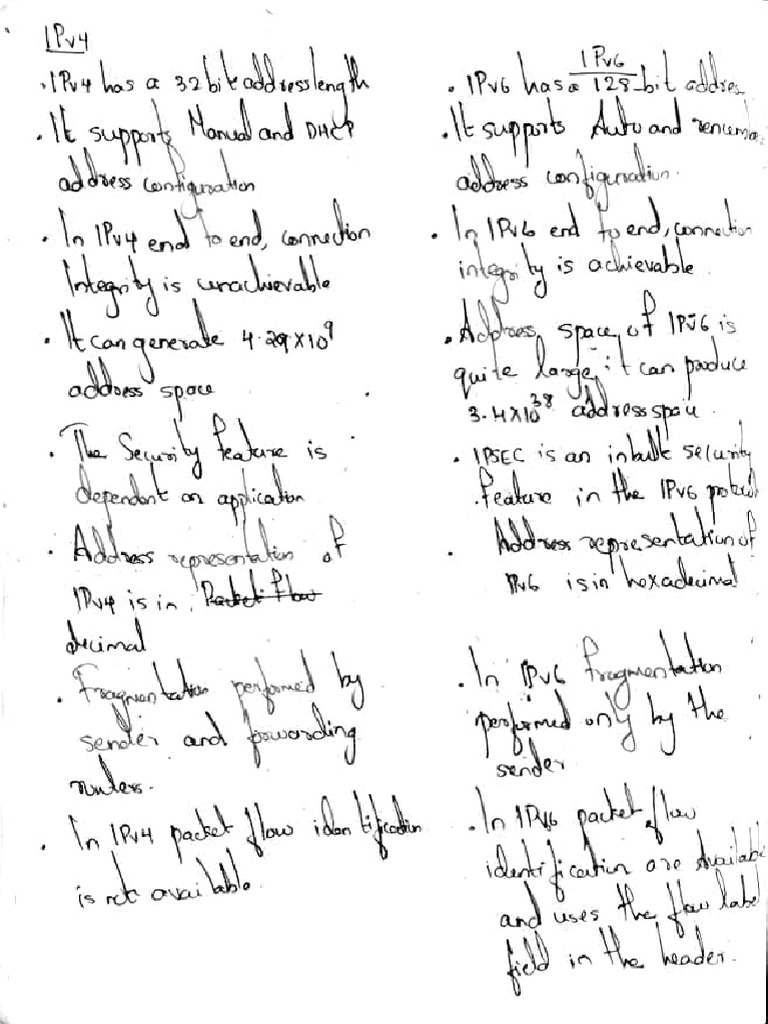 IPv4
. IPv4 has a 32 bit address length
. It supports Manual and DHCP
address configuration
. In IPv4 end to end, connection
Integrity is unachievable
. It can generate 4.29x10^9
address space
. The Security feature is
dependent on application
. Address representation of
IPv4 is in Packet flow
decimal
. Fragmentation performed by
sender and forwarding
routers.
. In IPv4 packet flow identification
is not available.
IPv6
. IPv6 has a 128-bit addres
. It supports Auto and renumbe
address configuration.
. In IPv6 end to end, connection
integrity is achievable.
. Address space of IPv6 is
quite large it can produce
3.4x10^38 address space.
. IPSEC is an inbuilt security
feature in the IPv6 protocol
. Address representation of
IPv6 is in hexadecimal
. In IPv6 fragmentation
performed only by the
sender
. In IPv6 packet flow
identification are Availabl
and uses the flow label
field in the header.